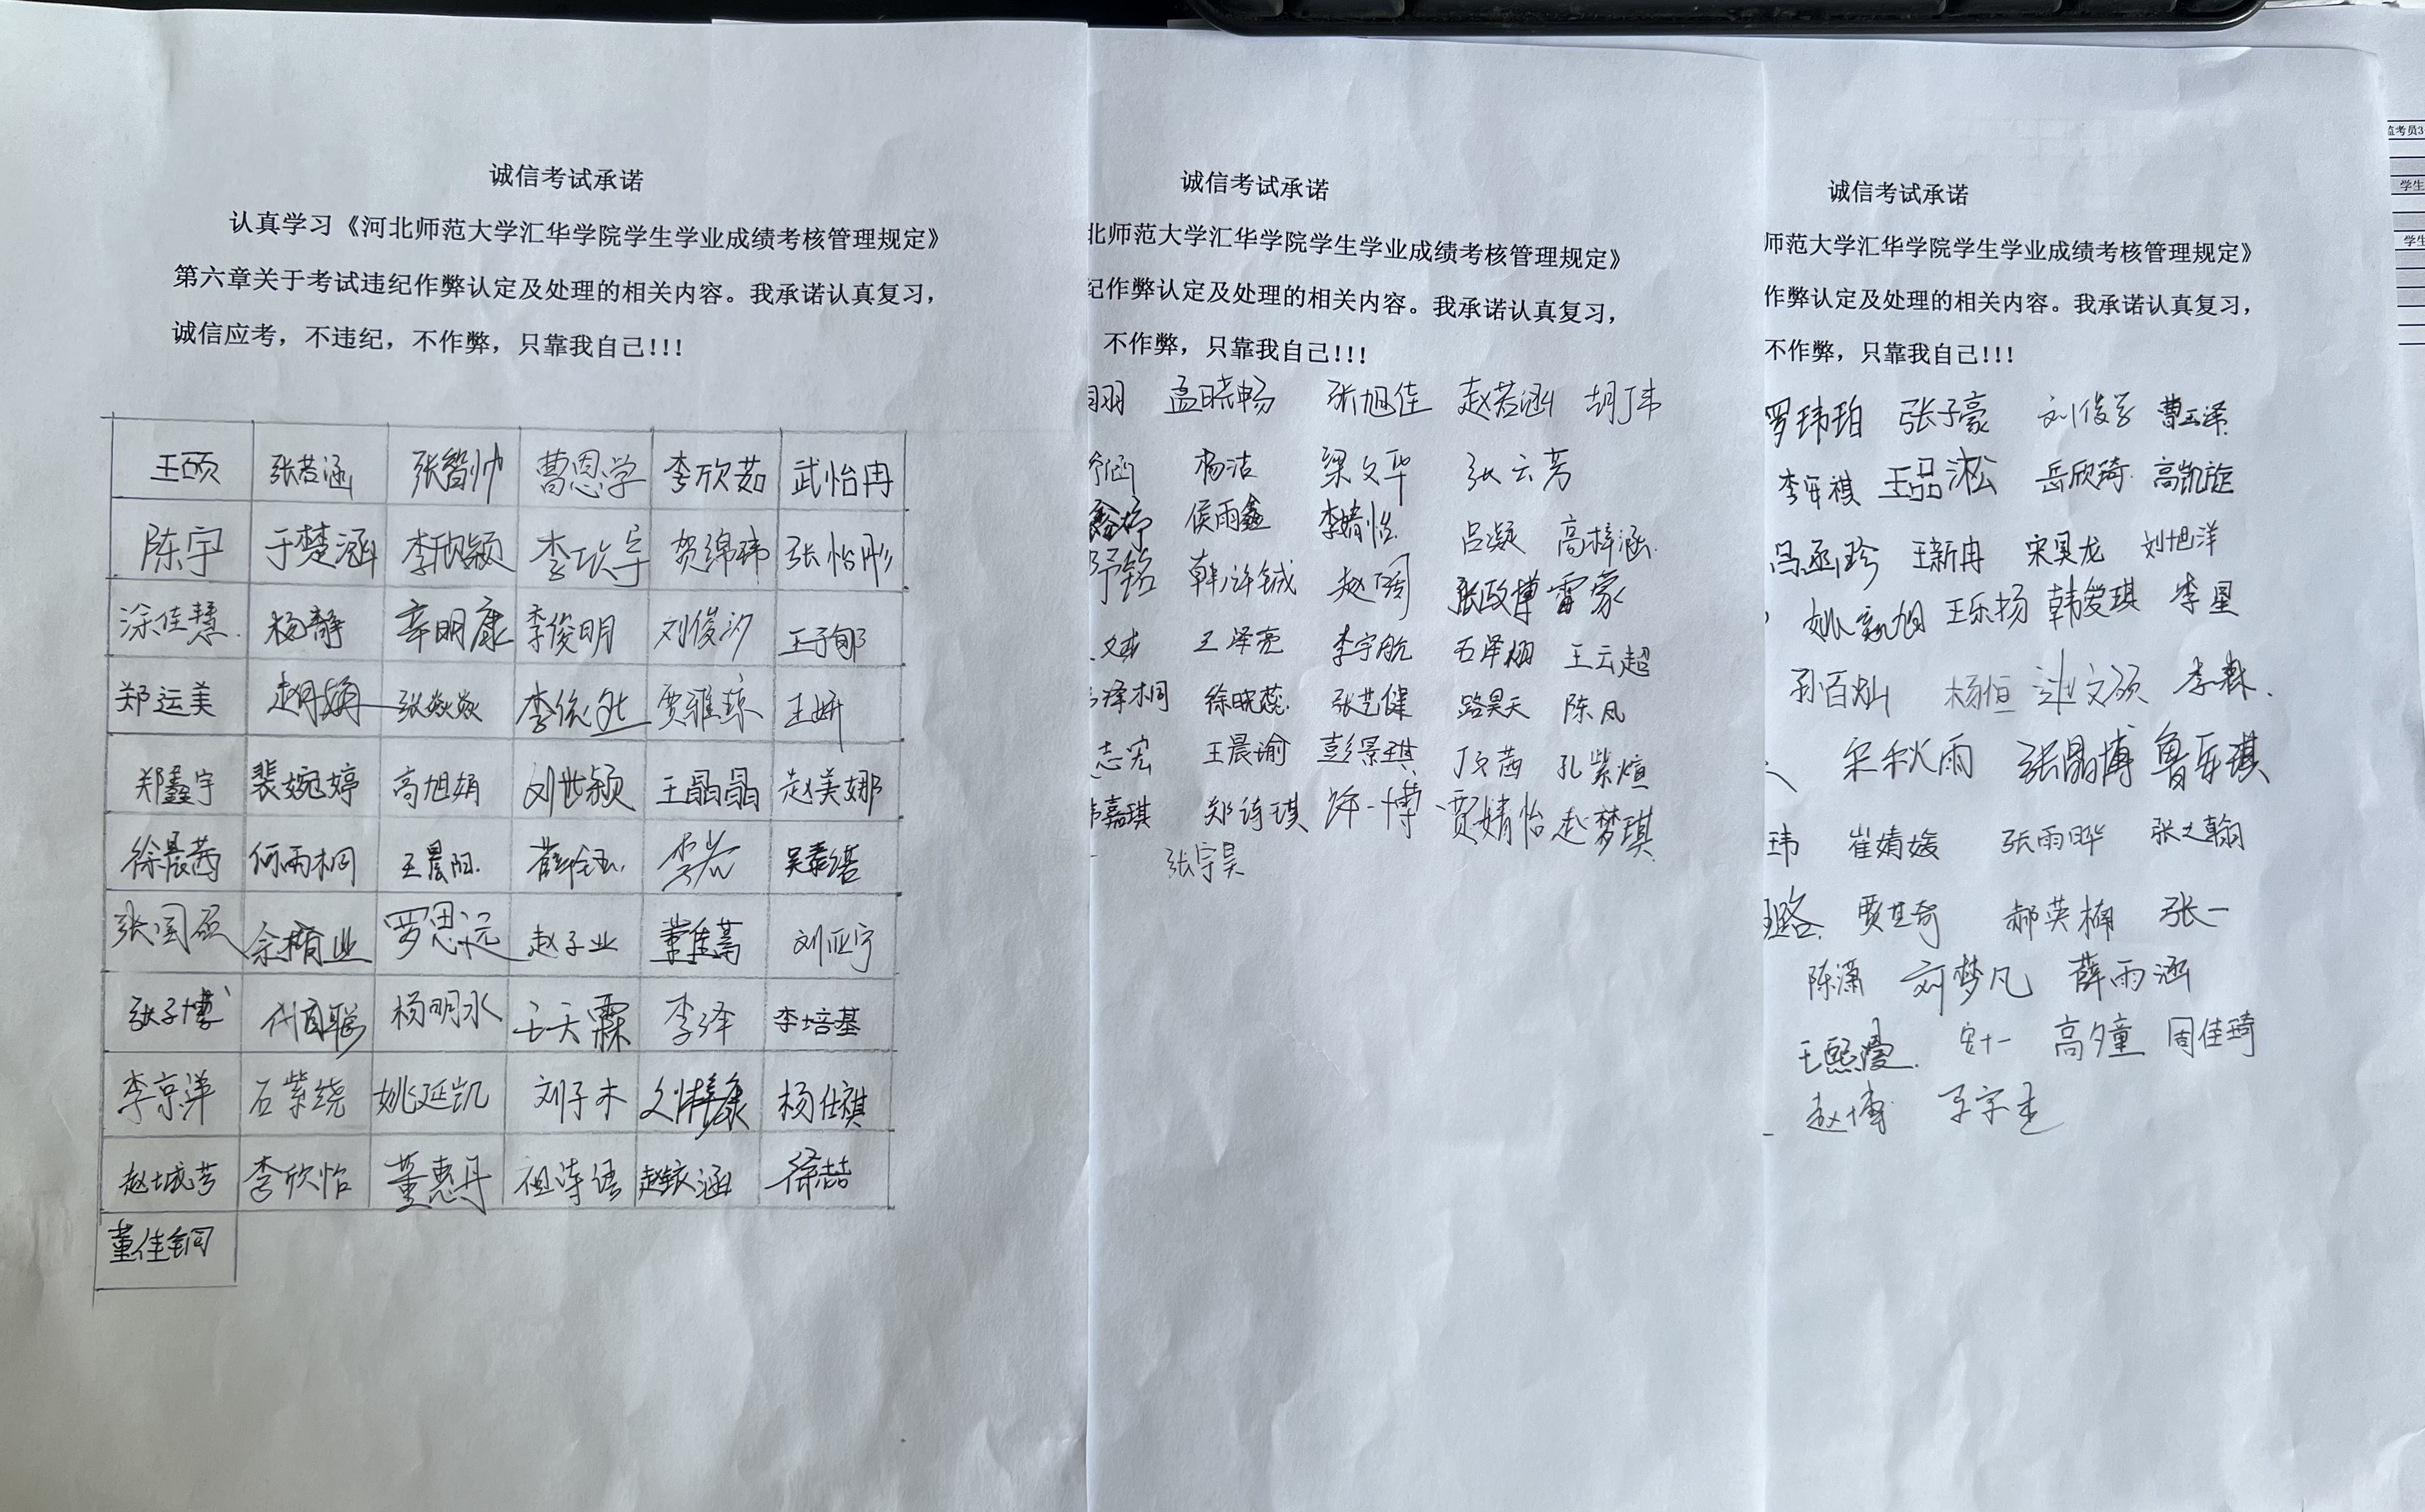 诚信考试承诺
认真学习《河北师范大学汇华学院学生学业成绩考核管理规定》
第六章关于考试违纪作弊认定及处理的相关内容。我承诺认真复习，
诚信应考，不违纪，不作弊，只靠我自己!!!
王硕 张若涵 张智帅 曹恩学 李欣茹 武怡冉
陈宇 于楚涵 李欣颖 贺绵玮 张怡彤
涂佳慧 杨静 辛明康 李俊明 刘俊汐
郑运美 张焱焱 贾雅琼 王妍
郑鑫宇 裴婉婷 高旭娟 刘世颖 王晶晶 赵美娜
徐晨茜 何雨桐 王晨阳
罗思远 赵子业 董佳菁 刘亚宁
张子博 杨明水 王天霖 李泽 李培基
李京洋 石紫绕 姚延凯 刘子木 刘梓康 杨仕祺
李欣怡 董惠丹 徐喆
董佳钶
诚信考试承诺
北师范大学汇华学院学生学业成绩考核管理规定》
纪作弊认定及处理的相关内容。我承诺认真复习，
不作弊，只靠我自己!!!
孟晓畅 张旭佳 赵若涵 胡丁韦
杨洁 梁文华 张云芳
侯雨鑫 李婧怡 吕凝 高梓涵
张政博 雷蒙
王泽亮 李宇航 石泽栩 王云超
泽桐 徐晓蕊 张艺健 路昊天 陈凤
志宏 王晨瑜 彭景琪 丁文茜 孔紫煊
嘉琪 郑诗琪 许一博 贾婧怡 赵梦琪
张宇昊
诚信考试承诺
师范大学汇华学院学生学业成绩考核管理规定》
作弊认定及处理的相关内容。我承诺认真复习，
不作弊，只靠我自己!!!
罗玮珀 张子豪 曹玉泽
李年祺 王品淞 岳欣琦 高凯旋
王新冉 宋昊龙 刘旭洋
王乐扬 韩爱琪 李星
孙百灿 杨恒 李淼
宋秋雨 张晶博 鲁乐琪
玮 崔婧媛 张雨晔 张之翰
璐 贾世奇 郝英楠 张一
陈潇 刘梦凡 薛雨涵
高夕童 周佳琦
赵博
监考员3
学生
学生